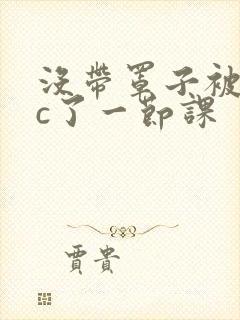 沒帶罩子被
c了一節課
賈貴